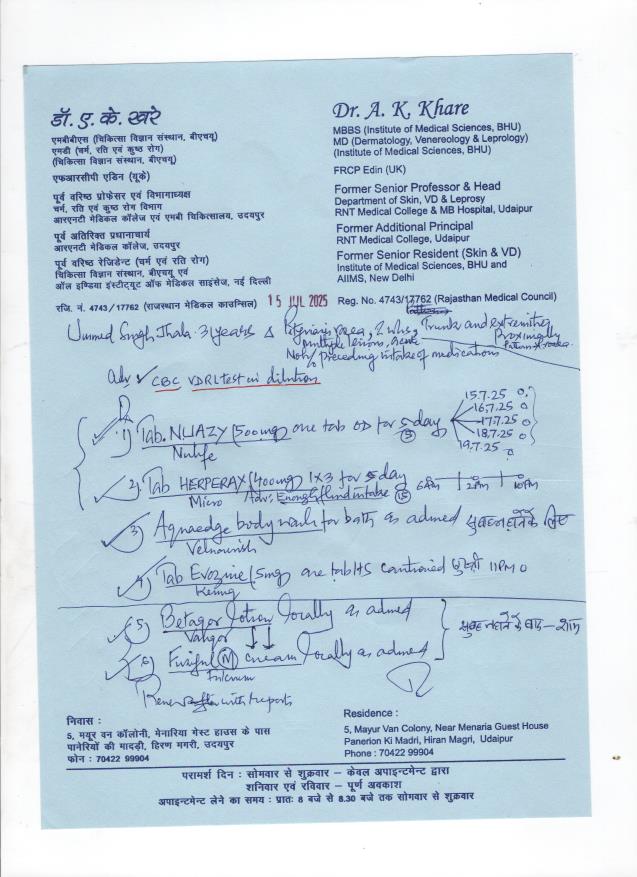 डॉ. ए. के. खरे
एमबीबीएस (चिकित्सा विज्ञान संस्थान, बीएचयू)
एमडी (चर्म, रति एवं कुष्ठ रोग)
(चिकित्सा विज्ञान संस्थान, बीएचयू)
एफआरसीपी एडिन (यूके)
पूर्व वरिष्ठ प्रोफेसर एवं विभागाध्यक्ष
चर्म, रति एवं कुष्ठ रोग विभाग
आरएनटी मेडिकल कॉलेज एवं एमबी चिकित्सालय, उदयपुर
पूर्व अतिरिक्त प्रधानाचार्य
आरएनटी मेडिकल कॉलेज, उदयपुर
पूर्व वरिष्ठ रेजिडेन्ट (चर्म एवं रति रोग)
चिकित्सा विज्ञान संस्थान, बीएचयू एवं
ऑल इण्डिया इंस्टीट्यूट ऑफ मेडिकल साइंसेज, नई दिल्ली
रजि. नं. 4743/17762 (राजस्थान मेडिकल काउन्सिल)
Dr. A. K. Khare
MBBS (Institute of Medical Sciences, BHU)
MD (Dermatology, Venereology & Leprology)
(Institute of Medical Sciences, BHU)
FRCP Edin (UK)
Former Senior Professor & Head
Department of Skin, VD & Leprosy
RNT Medical College & MB Hospital, Udaipur
Former Additional Principal
RNT Medical College, Udaipur
Former Senior Resident (Skin & VD)
Institute of Medical Sciences, BHU and
AIIMS, New Delhi
15 JUL 2025 Reg. No. 4743/17762 (Rajasthan Medical Council)
Ummed Singh Jhala 31 years Δ Pityriasis rosea, 2 wks, Trunk and extremities
Proximally
multiple lesions, acute
No h/o preceding intake of medications
Adv ✓ CBC VDRL test in dilution
1) Tab. NUAZY (500mg) one tab OD for 5 day
15.7.25
16.7.25
17.7.25
18.7.25
19.7.25
Nulife
2) Tab HERPERAX (400mg) 1x3 for 5 day 6AM 2PM 10PM
Micro Adv. Enough fluid intake 15
3) Aquaedge body wash for bath as advised सुबह नहाने के लिए
Velnourish
4) Tab Evozine (5mg) one tab HS cautioned 11PM
5) Betagor lotion locally as advised
6) cream locally as advised
सुबह नहाने के बाद - शाम
Fulcrum
Review after with reports
निवास :
5, मयूर वन कॉलोनी, मेनारिया गेस्ट हाउस के पास
पानेरियों की मादड़ी, हिरण मगरी, उदयपुर
फोन : 70422 99904
Residence :
5, Mayur Van Colony, Near Menaria Guest House
Panerion Ki Madri, Hiran Magri, Udaipur
Phone : 70422 99904
परामर्श दिन : सोमवार से शुक्रवार – केवल अपाइन्टमेन्ट द्वारा
शनिवार एवं रविवार – पूर्ण अवकाश
अपाइन्टमेन्ट लेने का समय : प्रातः 8 बजे से 8.30 बजे तक सोमवार से शुक्रवार